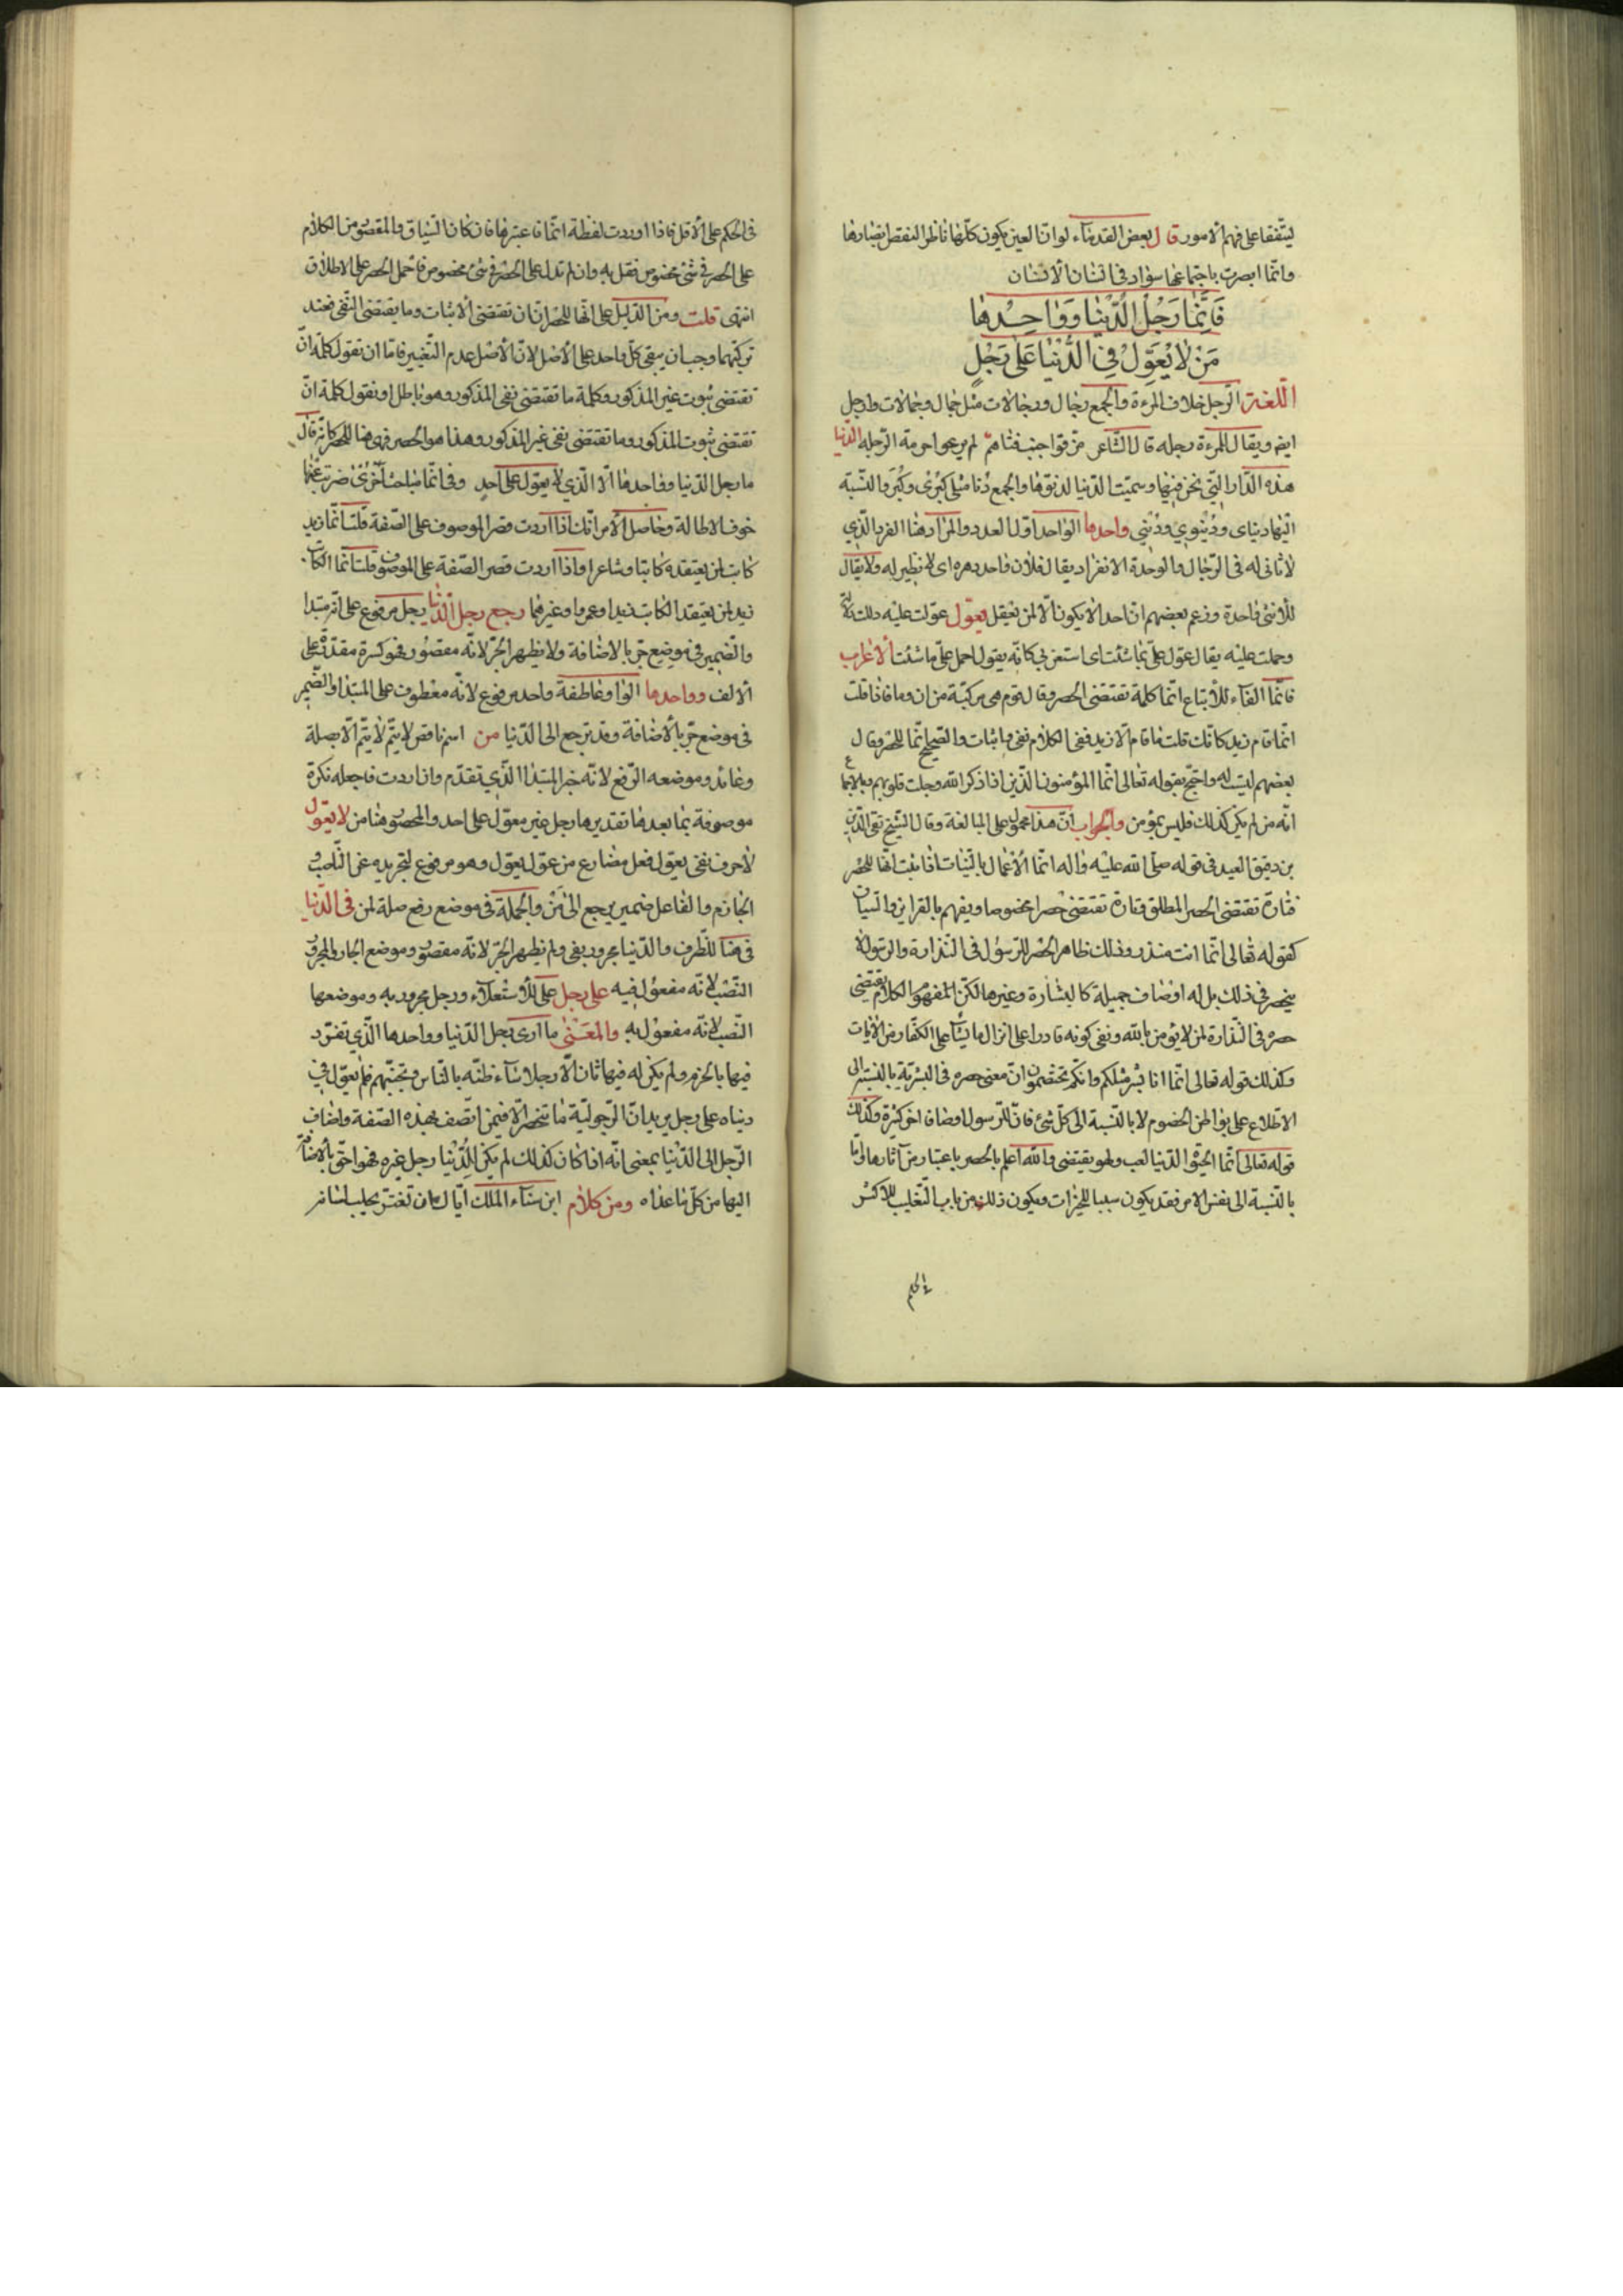 ليتفقا على فهم الامور قال بعض القدماء لو ان العين يكون كلها ناظرا لنقص ابصارها
وانما ابصرت باجتماعها سواد فى انسان الانسان
فَاِنَّمٰا رَجُلُ الدُّنْيٰا وَوٰاحِدُهٰا
مَنْ لٰا يُعَوِّلُ فِى الدُّنْيٰا عَلٰى رَجُلٍ
اللغة الرجل خلاف المرءة والجمع رجال ورجالات مثل جمال وجمالات واراجل
ايض ويقال للمرءة رجله قال الشاعر مزّقوا جيب فتاهم لم يرعوا حرمة الرجله الدنيا
هذه الدار التى نحن فيها وسميت الدنيا لدنوّها والجمع دُنا مثل كبرى وكُبَر والنسبة
اليها دنياى ودُنيوى ودُنيى واحدها الواحد اول العدد والمراد هنا الفرد الذى
لا ثانى له فى الرجال والوحدة الانفراد يقال فلان واحد دهره اى لا نظير له ولا يقال
للانثى واحدة وزعم بعضهم ان احدا لا يكون الّا لمن يعقل يعوّل عوّلت عليه دللت
وحملت عليه يقال عوّل علىّ بما شئت اى استعن بى كانه يقول احمل علىّ ما شئت الاعراب
فانّما الفاء للاتباع انما كلمة تقتضى الحصر وقال قوم هى مركبة من ان وما فاذا قلت
انما قام زيد كانك قلت ما قام الا زيد ففى الكلام نفى واثبات والصحيح انما للحصر وقال
بعضهم ليست له واحتج بقوله تعالى انما المؤمنون الذين اذا ذكر الله وجلت قلوبهم
انه من لم يكن كذلك فليس بمؤمن والجواب ان هذا محمول على المبالغة وقال الشيخ تقى الدين
بن دقيق العيد فى قوله صلى الله عليه واله انما الاعمال بالنيات اذا ثبت انها للحصر
فتارة تقتضى الحصر المطلق وتارة تقتضى حصرا مخصوصا ويفهم بالقراين والسياق
كقوله تعالى انما انت منذر وذلك ظاهر الحصر للرسول فى النذارة والرسول لا
ينحصر فى ذلك بل له اوصاف جميلة كالبشارة وغيرها لكن المفهوم الكلام يقتضى
حصره فى النذارة لمن لا يؤمن بالله ونفى كونه قادرا على انزال ما يشاء على الكفار من الايات
وكذلك قوله تعالى انما انا بشر مثلكم وانكم تختصمون ان معنى حصره فى البشرية بالنسبة الى
الاطلاع على بواطن الخصوم لا بالنسبة الى كل شئ فان للرسول اوصافا اخر كثيرة وكذلك
قوله تعالى انما الحيوة الدنيا لعب ولهو يقتضى والله اعلم بالحصر باعتبار من آثارها وامّا
بالنسبة الى نفس الامر فقد يكون سببا للخيرات ويكون ذلك من باب التغليب للاكثر
فى الحكم
فى الحكم على الاقل فاذا اوردت لفظة انما فاعتبرها فان كان السياق والمقصود من الكلام
على الحصر فى شئ مخصوص فقل به وان لم تدل على الحصر فى شئ مخصوص فاحمل الحصر على الاطلاق
انتهى قلت ومن الدليل على انها للحصر ان ان تقتضى الاثبات وما يقتضى النفى فعند
تركبهما وجب ان يبقى كل واحد على الاصل لان الاصل عدم التغيير فاما ان تقول كلمة انّ
تقتضى ثبوت غير المذكور وكلمة ما تقتضى نفى المذكور وهو باطل او نقول كلمة انّ
تقتضى ثبوت المذكور وما تقتضى نفى غير المذكور وهذا هو الحصر فهى هنا للحصر كانه قال
ما رجل الدنيا وواحدها الا الذى لا يعوّل على احد وفى انما مباحث اخرى ضربت عنها
خوف الاطالة وحاصل الامر انك اذا اردت قصر الموصوف على الصفة قلت انما زيد
كاتب لمن يعتقده كاتبا وشاعرا واذا اردت قصر الصفة على الموصوف قلت انما الكاتب
زيد لمن يعتقد الكاتب زيدا وعمرا وغيرهما رجع رجل الدنيا رجل مرفوع على انه مبتدا
والضمير فى موضع جرّ بالاضافة ولا يظهر الجرّ لانه مقصور فهو كسرة مقدرة على
الالف وواحدها الواو عاطفة واحد مرفوع لانه معطوف على المبتدا والضمير
فى موضع جرّ بالاضافة وقد يرجع الى الدنيا من اسم ناقص لا يتم لا يتم الا بصلة
وعائد وموضعه الرفع لانه خبر المبتدا الذى تقدم وان اردت فاجعله نكرة
موصوفة بما بعدها تقديرها رجل غير معوّل على احد والمحصور هنا من لا يعوّل
لا حرف نفى يعوّل فعل مضارع من عوّل يعوّل وهو مرفوع لتجريده عن الناصب و
الجازم والفاعل ضمير يرجع الى مَنْ والجملة فى موضع رفع صلة لمن فى الدنيا
فى هنا للظرف والدنيا مجرور بفى ولم يظهر الجرّ لانه مقصور وموضع الجار والمجرور
النصب لانه مفعول فيه على رجل على للاستعلاء ورجل مجرور به وموضعها
النصب لانه مفعول به والمعنى ما ارى رجل الدنيا وواحدها الذى تفرّد
فيها بالحزم ولم يكن له فيها ثان الّا رجلا ساء ظنه بالناس وتجنبهم فلم يعوّل فى
دنياه على رجل يريد ان الرجولية ما تنحصر الا فيمن اتصف بهذه الصفة واضاف
الرجل الى الدنيا بمعنى انه اذا كان كذلك لم يكن للدنيا رجل غيره فهو احق بالاضافة
اليها من كل ما عداه ومن كلام ابن سناء الملك اياك ان تغترّ